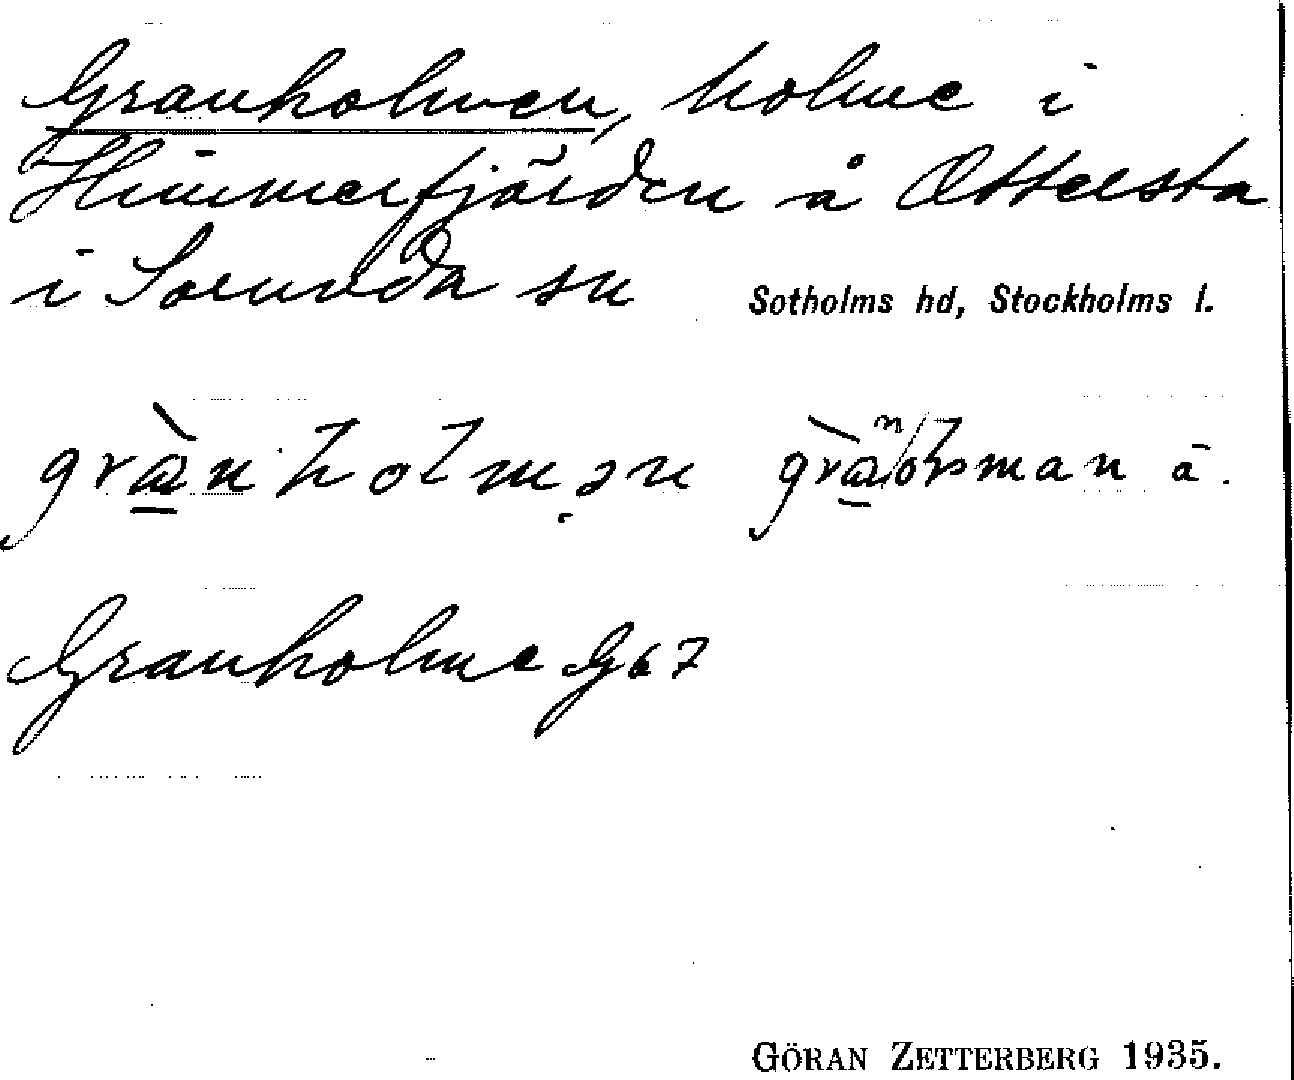 Granholmen, holme i
Himmerfjärden å Ottersta
i Sorunda sn Sotholms hd, Stockholms l.
grànholmən
Granholme G67
GÖRAN ZETTERBERG 1935.